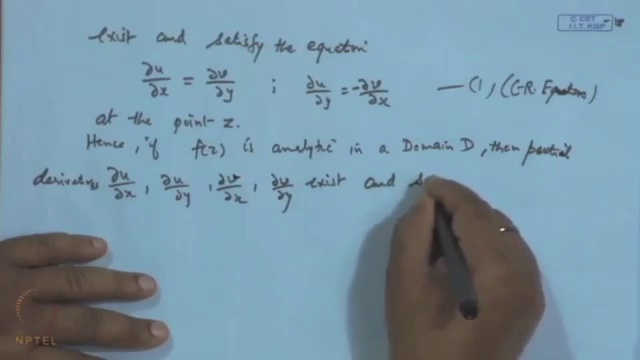 © CET
I.I.T. KGP
exist and satisfy the equation
∂u/∂x = ∂v/∂y ; ∂u/∂y = -∂v/∂x —(1) (C-R. Equations)
at the point z.
Hence, if f(z) is analytic in a Domain D, then partial
derivatives ∂u/∂x, ∂u/∂y, ∂v/∂x, ∂v/∂y exist and s
NPTEL